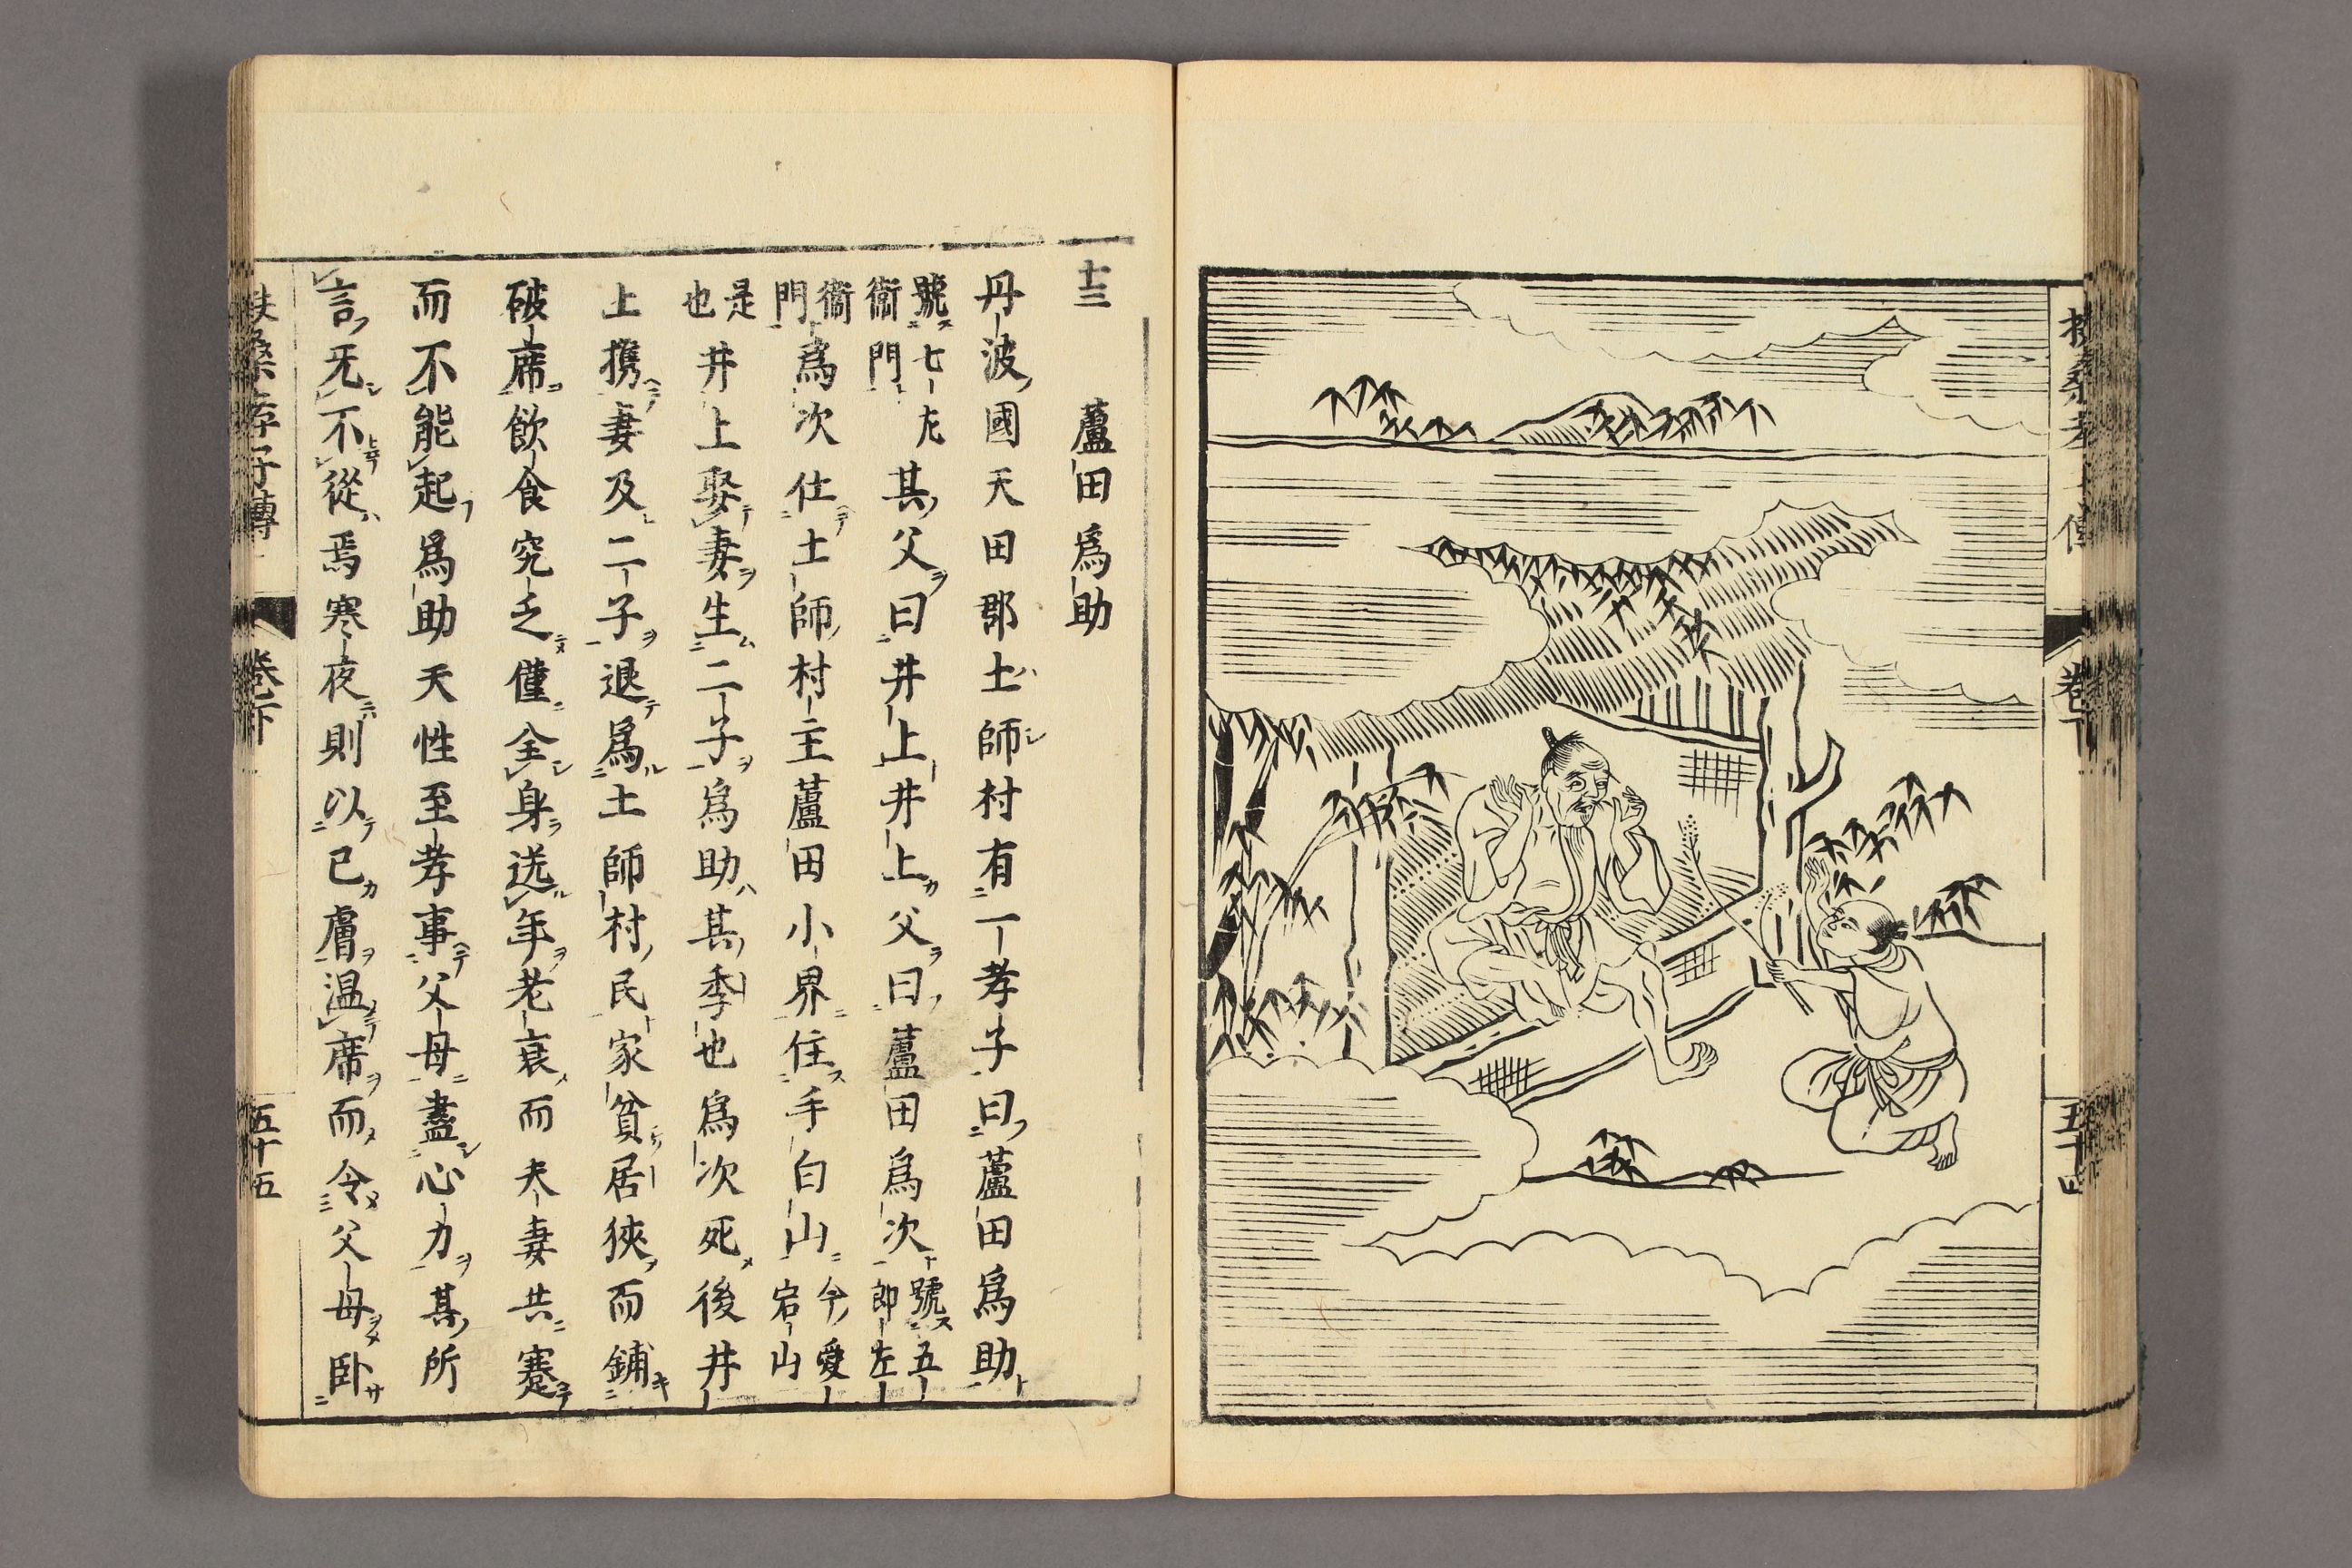 扶桑孝子傳
卷下
五十四
十三　蘆田爲助
丹波國天田郡土師村有一孝子曰蘆田爲助
號七左
衞門
其父曰井上井上父曰蘆田爲次
號五
郎左
衞
門
爲次仕土師村主蘆田小界住手白山
今愛
宕山
是
也
井上娶妻生二子爲助其季也爲次死後井
上携妻及二子退爲土師村民家貧居狹而鋪
破席飮食究乏僅全身送年老衰而夫妻共蹇
而不能起爲助天性至孝事父母盡心力其所
言无不從焉寒夜則以己膚温席而令父母臥
扶桑孝子傳
卷下
五十五